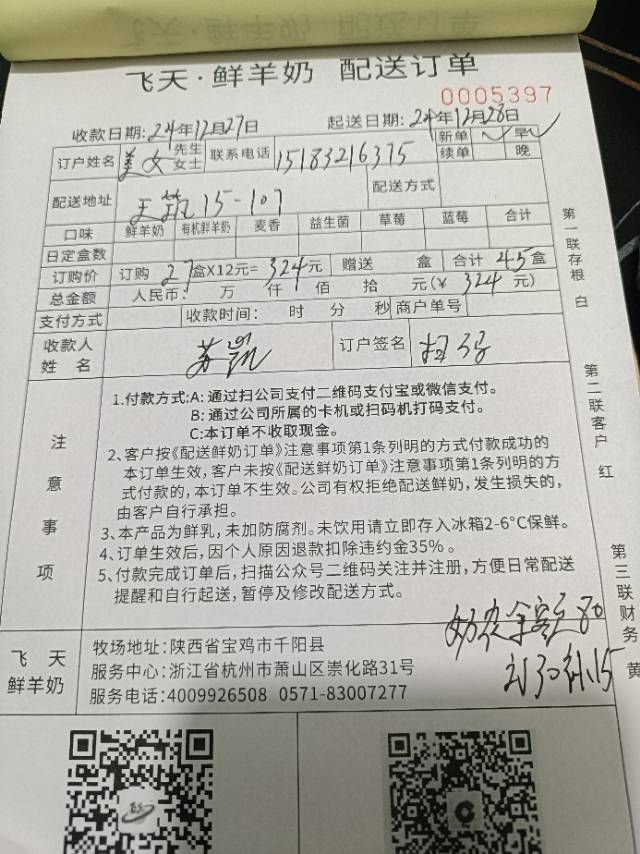 飞天·鲜羊奶 配送订单
0005397
收款日期: 24年12月27日 起送日期: 24年12月28日
订户姓名 美女 先生 女士 联系电话 15183216375 新单 早 续单 晚
配送地址 天筑15-107 配送方式
口味 鲜羊奶 有机鲜羊奶 麦香 益生菌 草莓 蓝莓 合计
日定盒数
订购价 订购 27 盒X12元= 324元 赠送 盒 合计 45盒
总金额 人民币: 万 仟 佰 拾 元(¥ 324 元)
支付方式 收款时间: 时 分 秒 商户单号
收款人姓名 苏凯 订户签名 扫码
注意事项
1.付款方式:A: 通过扫公司支付二维码支付宝或微信支付。
B: 通过公司所属的卡机或扫码机打码支付。
C:本订单不收取现金。
2、客户按《配送鲜奶订单》注意事项第1条列明的方式付款成功的
本订单生效,客户未按《配送鲜奶订单》注意事项第1条列明的方
式付款的,本订单不生效。公司有权拒绝配送鲜奶,发生损失的,
由客户自行承担。
3、本产品为鲜乳,未加防腐剂。未饮用请立即存入冰箱2-6°C保鲜。
4、订单生效后,因个人原因退款扣除违约金35%。
5、付款完成订单后,扫描公众号二维码关注并注册,方便日常配送
提醒和自行起送,暂停及修改配送方式。
余额80
补15
飞天
鲜羊奶
牧场地址:陕西省宝鸡市千阳县
服务中心:浙江省杭州市萧山区崇化路31号
服务电话:4009926508 0571-83007277
第一联存根 白
第二联客户 红
第三联财务 黄